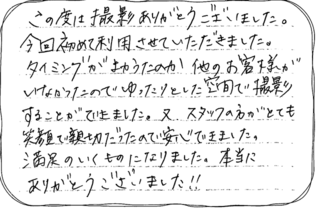 この度は撮影ありがとうございました。
今回初めて利用させていただきました。
タイミングがまあうたのか他のお客様が
いなかったのでゆったりとした空間で撮影
することができました。又スタッフの方がとても
笑顔で親切だったので安心できました。
満足のいくものになりました。本当に
ありがとうございました!!